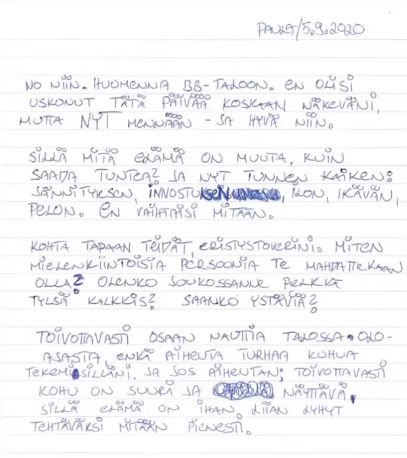 PANLA/5.9.2020
NO NIIN. HUOMENNA BB-TALOON. EN OLISI
USKONUT TÄTÄ PÄIVÄÄ KOSKAAN NÄKEVÄNI,
MUTTA NYT MENNÄÄN - JA HYVÄ NIIN.
SILLÄ MITÄ ELÄMÄ ON MUUTA, KUIN
SAADA TUNTEA? JA NYT TUNNEN KAIKEN:
JÄNNITYKSEN, INNOSTUKSEN, ILON, IKÄVÄN,
PELON. EN VAIHTAISI MITÄÄN.
KOHTA TAPAAN TEIDÄT, ERISTYSTOVERINI. MITEN
MIELENKIINTOISIA PERSOONIA TE MAHDATTEKAAN
OLLA? OLENKO JOUKOSSANNE PELKKÄ
TYLSÄ KALKKIS? SAANKO YSTÄVIÄ?
TOIVOTTAVASTI OSAAN NAUTTIA TALOSSA OLO-
AJASTA, ENKÄ AIHEUTA TURHAA KOHUA
TEKEMISILLÄNI. JA JOS AIHEUTAN; TOIVOTTAVASTI
KOHU ON SUURI JA NÄYTTÄVÄ,
SILLÄ ELÄMÄ ON IHAN LIIAN LYHYT
TEHTÄVÄKSI MITÄÄN PIENESTI.